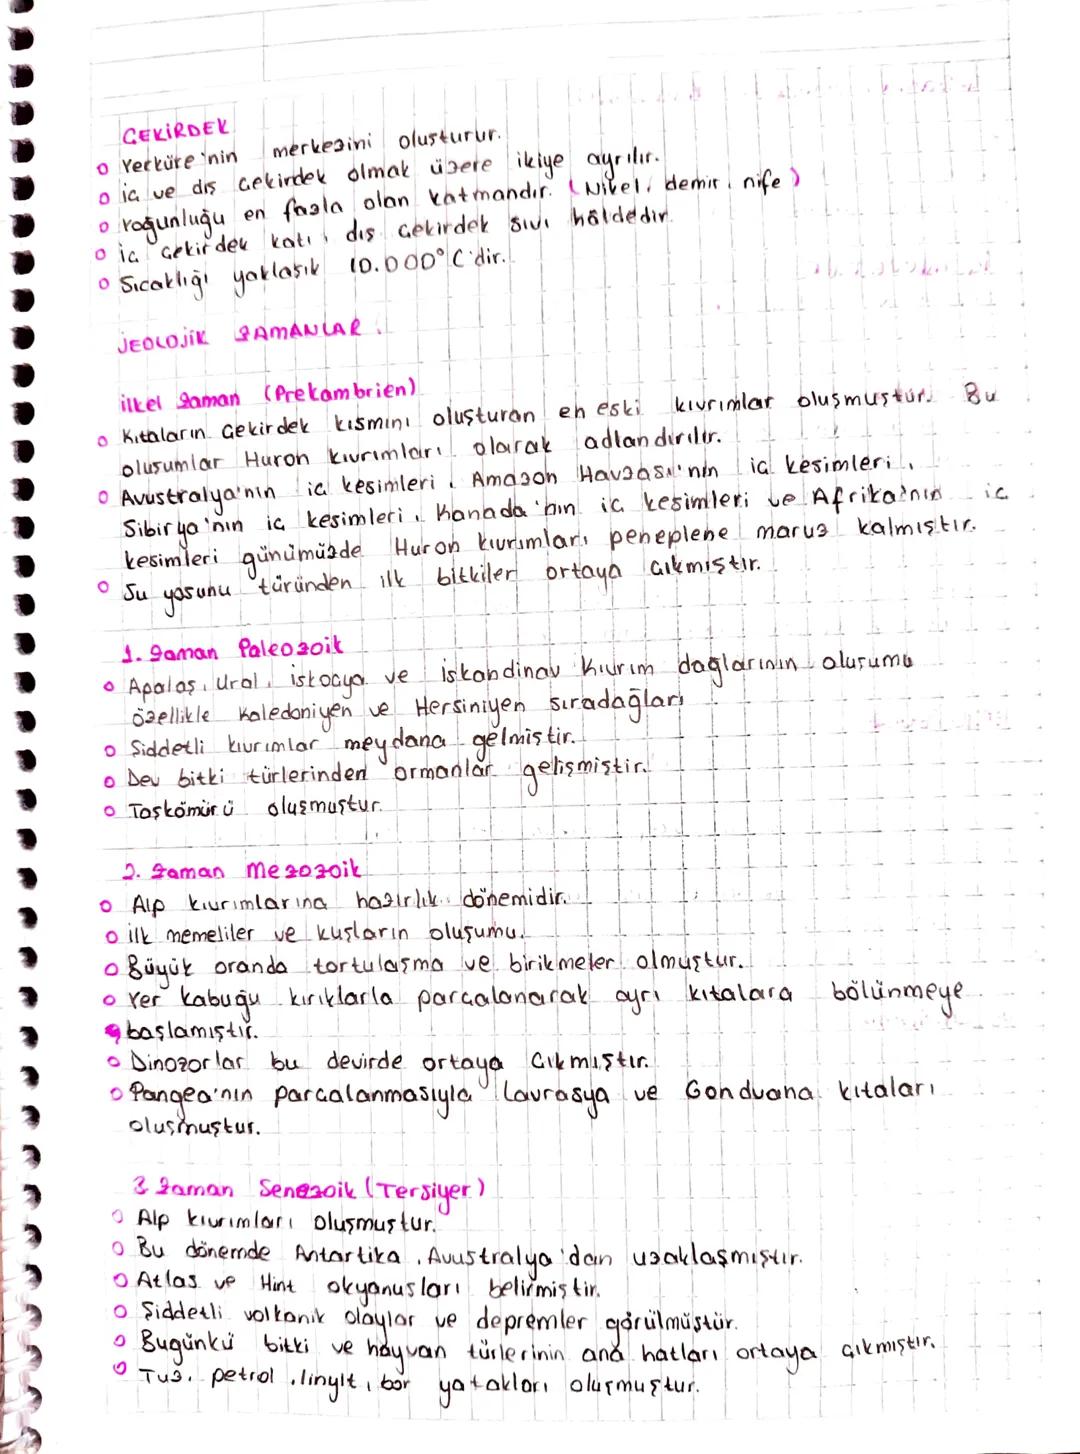 ÇEKİRDEK
o Yerküre'nin merkezini oluşturur.
o iç ve dış çekirdek olmak üzere ikiye ayrılır.
o Yoğunluğu en fazla olan katmandır. (Nikel, demir, nife)
o iç çekirdek katı, dış çekirdek sıvı hâldedir.
o Sıcaklığı yaklaşık 10.000°C'dir.
JEOLOJİK ZAMANLAR.
ilkel Zaman (Prekambrien)
o Kıtaların çekirdek kısmını oluşturan en eski kıvrımlar oluşmuştur. Bu
oluşumlar Huron kıvrımları olarak adlandırılır.
o Avustralya'nın iç kesimleri, Amazon Havzası'nın iç kesimleri,
Sibirya'nın iç kesimleri, Kanada'nın iç kesimleri ve Afrika'nın iç
kesimleri günümüzde Huron kıvrımları peneplene maruz kalmıştır.
o Su yosunu türünden ilk bitkiler ortaya çıkmıştır.
1. Zaman Paleozoik
o Apalaş, Ural, iskoçya ve iskandinav Kıvrım dağlarının oluşumu
özellikle Kaledoniyen ve Hersiniyen sıradağları
o Şiddetli kıvrımlar meydana gelmiştir.
o Dev bitki türlerinden ormanlar gelişmiştir.
o Taşkömürü oluşmuştur.
2. Zaman Mezozoik
o Alp kıvrımlarına hazırlık dönemidir.
o ilk memeliler ve kuşların oluşumu.
o Büyük oranda tortulaşma ve birikmeler olmuştur.
o Yer kabuğu kırıklarla parçalanarak ayrı kıtalara bölünmeye
başlamıştır.
o Dinozorlar bu devirde ortaya çıkmıştır.
o Pangea'nın parçalanmasıyla Lavrasya ve Gonduana kıtaları
oluşmuştur.
3 Zaman Senezoik (Tersiyer)
o Alp kıvrımları oluşmuştur.
o Bu dönemde Antartika, Avustralya'dan uzaklaşmıştır.
o Atlas ve Hint okyanusları belirmiştir.
o Şiddetli volkanik olaylar ve depremler görülmüştür.
o Bugünkü bitki ve hayvan türlerinin ana hatları ortaya çıkmıştır.
o Tuz, petrol, linyit, bor yatakları oluşmuştur.